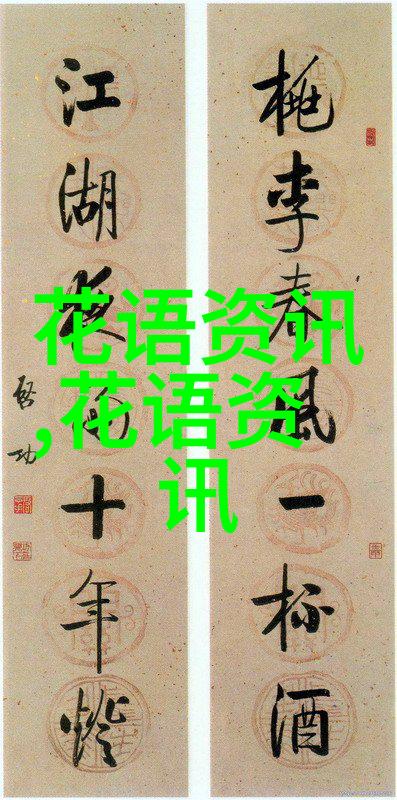 桃李春風一杯酒
江湖夜雨十年燈
啓功
花语资讯
,花语资
讯